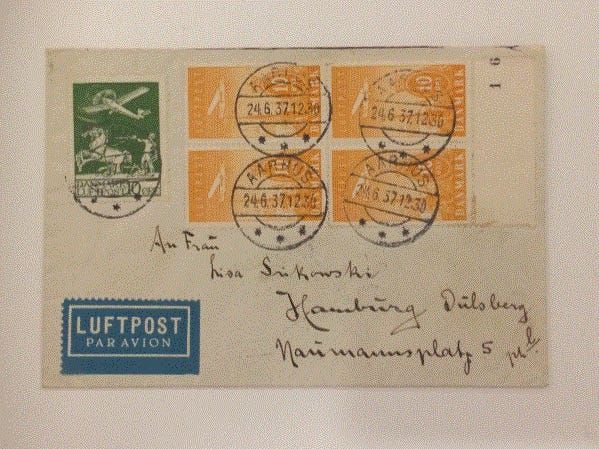 16
10
DANMARK
10
DANMARK
DANMARK
DANMARK
LUFTPOST 10 ØRE
AARHUS
24.6.37.12.30
AARHUS
24.6.37.12.30
AARHUS
24.6.37.12.30
AARHUS
24.6.37.12.30
An Frau
Lisa Sukowski
Hamburg Dulsberg
Naumannsplatz 5
LUFTPOST
PAR AVION